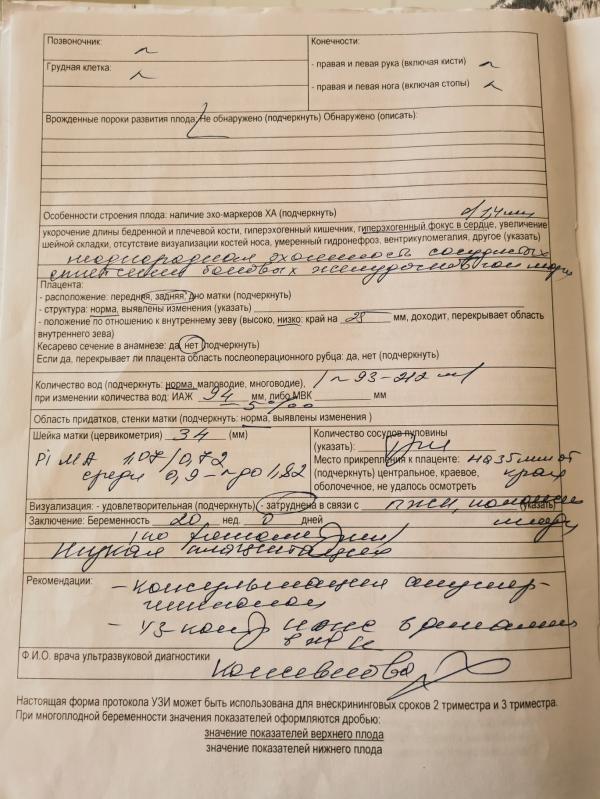 Позвоночник: ~
Конечности:
Грудная клетка: ~
- правая и левая рука (включая кисти) ~
- правая и левая нога (включая стопы) ~
Врожденные пороки развития плода: Не обнаружено (подчеркнуть) Обнаружено (описать):
Особенности строения плода: наличие эхо-маркеров ХА (подчеркнуть) d 1,4 мм
укорочение длины бедренной и плечевой кости, гиперэхогенный кишечник, гиперэхогенный фокус в сердце, увеличение
шейной складки, отсутствие визуализации костей носа, умеренный гидронефроз, вентрикуломегалия, другое (указать)
неоднородная эхогенность сосудистых
сплетений боковых желудочков
Плацента:
- расположение: передняя, задняя, дно матки (подчеркнуть)
- структура: норма, выявлены изменения (указать)
- положение по отношению к внутреннему зеву (высоко, низко: край на 25 мм, доходит, перекрывает область
внутреннего зева)
Кесарево сечение в анамнезе: да, нет (подчеркнуть)
Если да, перекрывает ли плацента область послеоперационного рубца: да, нет (подчеркнуть)
Количество вод (подчеркнуть: норма, маловодие, многоводие), ~ 93-212
при изменении количества вод: ИАЖ 94 мм, либо МВК мм
Область придатков, стенки матки (подчеркнуть: норма, выявлены изменения )
Шейка матки (цервикометрия) 34 (мм)
Количество сосудов пуповины
(указать): три
Pi МА 1,07/0,72
Место прикрепления к плаценте: на 35 мм от
средн 0,9 - до 1,82
(подчеркнуть) центральное, краевое, края
оболочечное, не удалось осмотреть
Визуализация: - удовлетворительная (подчеркнуть) - затруднена в связи с ПЖК, (указать)
Заключение: Беременность 20 нед. 0 дней
по
Низкая плацентация
Рекомендации:
- консультация акушер-
гинеколога
- УЗ-контр
Ф.И.О. врача ультразвуковой диагностики
Настоящая форма протокола УЗИ может быть использована для внескрининговых сроков 2 триместра и 3 триместра.
При многоплодной беременности значения показателей оформляются дробью:
значение показателей верхнего плода
значение показателей нижнего плода